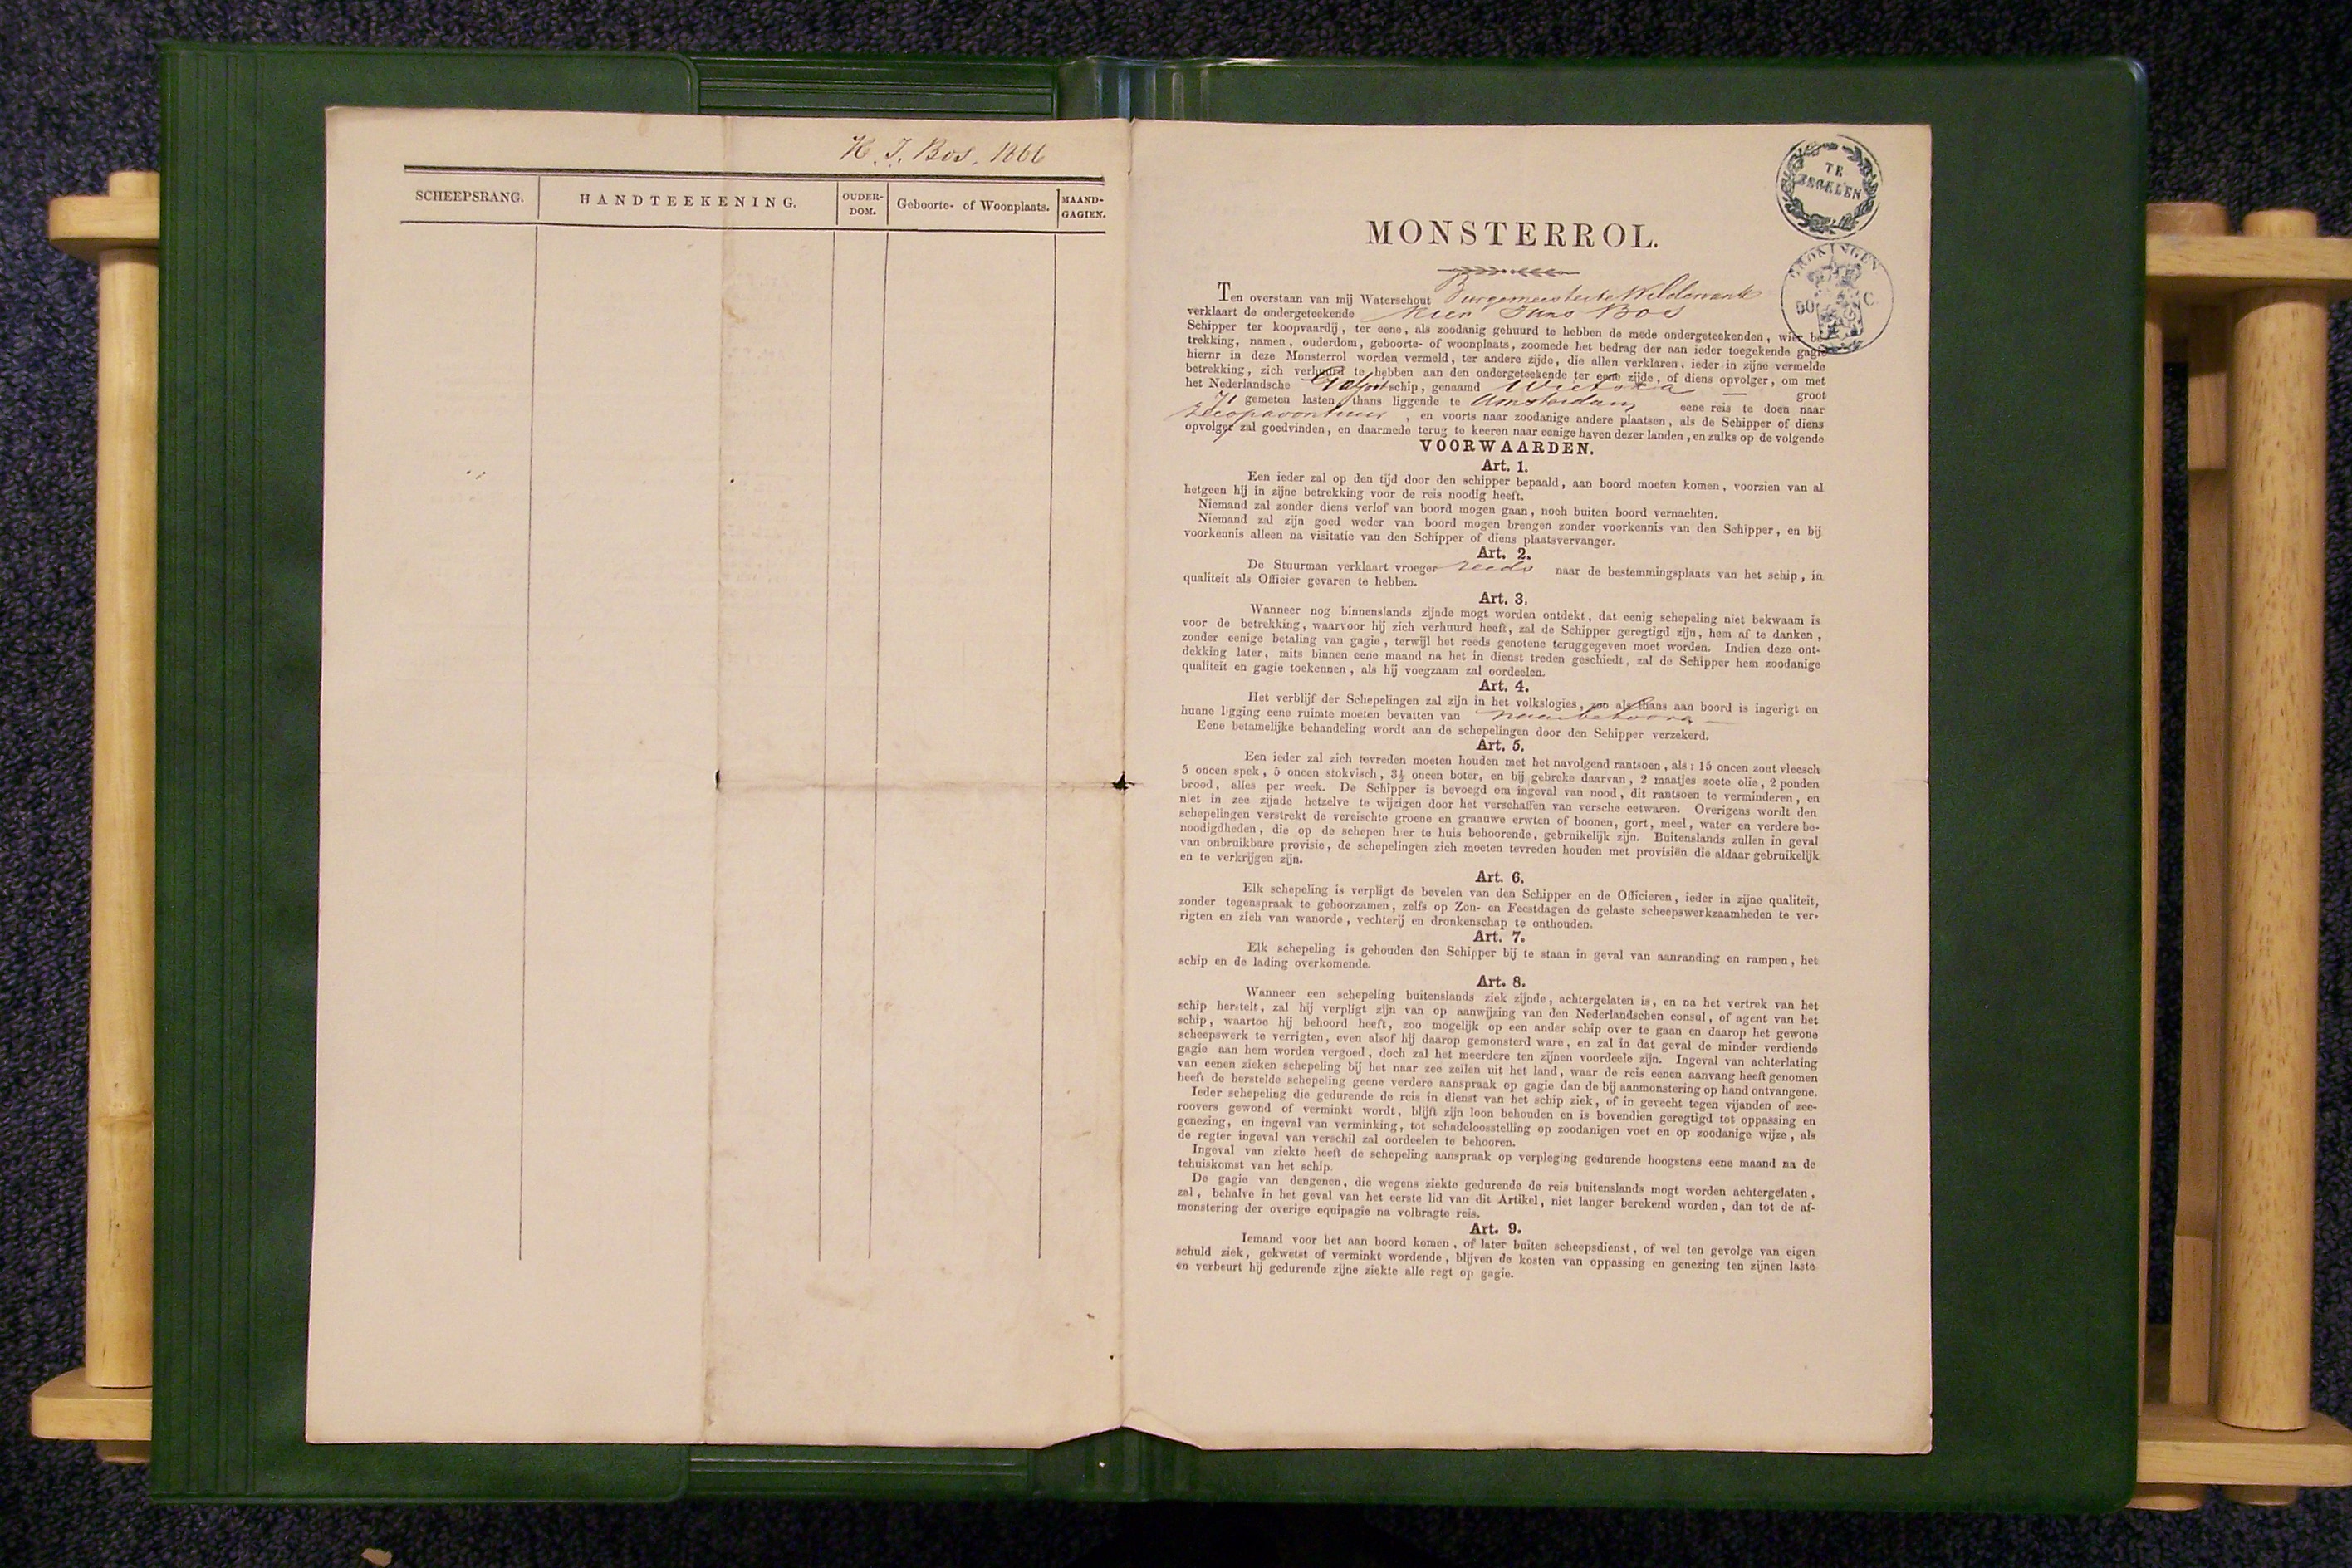 H. J. Bos. 1866
SCHEEPSRANG. HANDTEEKENING. OUDER-DOM. Geboorte- of Woonplaats. MAAND-GAGIEN.
TE ZEGELEN
GRONINGEN
50 C.
MONSTERROL.
Ten overstaan van mij Waterschout Burgemeester te Wildervank
verklaart de ondergeteekende Bos
Schipper ter koopvaardij, ter eene, als zoodanig gehuurd te hebben de mede ondergeteekenden, wier be-
trekking, namen, ouderdom, geboorte- of woonplaats, zoomede het bedrag der aan ieder toegekende gagie
hiernr in deze Monsterrol worden vermeld, ter andere zijde, die allen verklaren, ieder in zijne vermelde
betrekking, zich verhuurd te hebben aan den ondergeteekende ter eene zijde, of diens opvolger, om met
het Nederlandsche schip, genaamd groot
71 gemeten lasten, thans liggende te Amsterdam eene reis te doen naar
, en voorts naar zoodanige andere plaatsen, als de Schipper of diens
opvolger zal goedvinden, en daarmede terug te keeren naar eenige haven dezer landen, en zulks op de volgende
VOORWAARDEN.
Art. 1.
Een ieder zal op den tijd door den schipper bepaald, aan boord moeten komen, voorzien van al
hetgeen hij in zijne betrekking voor de reis noodig heeft.
Niemand zal zonder diens verlof van boord mogen gaan, noch buiten boord vernachten.
Niemand zal zijn goed weder van boord mogen brengen zonder voorkennis van den Schipper, en bij
voorkennis alleen na visitatie van den Schipper of diens plaatsvervanger.
Art. 2.
De Stuurman verklaart vroeger reeds naar de bestemmingsplaats van het schip, in
qualiteit als Officier gevaren te hebben.
Art. 3.
Wanneer nog binnenslands zijnde mogt worden ontdekt, dat eenig schepeling niet bekwaam is
voor de betrekking, waarvoor hij zich verhuurd heeft, zal de Schipper geregtigd zijn, hem af te danken,
zonder eenige betaling van gagie, terwijl het reeds genotene teruggegeven moet worden. Indien deze ont-
dekking later, mits binnen eene maand na het in dienst treden geschiedt, zal de Schipper hem zoodanige
qualiteit en gagie toekennen, als hij voegzaam zal oordeelen.
Art. 4.
Het verblijf der Schepelingen zal zijn in het volkslogies, zoo als thans aan boord is ingerigt en
hunne ligging eene ruimte moeten bevatten van naar behooren
Eene betamelijke behandeling wordt aan de schepelingen door den Schipper verzekerd.
Art. 5.
Een ieder zal zich tevreden moeten houden met het navolgend rantsoen, als: 15 oncen zout vleesch
5 oncen spek, 5 oncen stokvisch, 3½ oncen boter, en bij gebreke daarvan, 2 maatjes zoete olie, 2 ponden
brood, alles per week. De Schipper is bevoegd om ingeval van nood, dit rantsoen te verminderen, en
niet in zee zijnde hetzelve te wijzigen door het verschaffen van versche eetwaren. Overigens wordt den
schepelingen verstrekt de vereischte groene en graauwe erwten of boonen, gort, meel, water en verdere be-
noodigdheden, die op de schepen hier te huis behoorende, gebruikelijk zijn. Buitenslands zullen in geval
van onbruikbare provisie, de schepelingen zich moeten tevreden houden met provisiën die aldaar gebruikelijk
en te verkrijgen zijn.
Art. 6.
Elk schepeling is verpligt de bevelen van den Schipper en de Officieren, ieder in zijne qualiteit,
zonder tegenspraak te gehoorzamen, zelfs op Zon- en Feestdagen de gelaste scheepswerkzaamheden te ver-
rigten en zich van wanorde, vechterij en dronkenschap te onthouden.
Art. 7.
Elk schepeling is gehouden den Schipper bij te staan in geval van aanranding en rampen, het
schip en de lading overkomende.
Art. 8.
Wanneer een schepeling buitenslands ziek zijnde, achtergelaten is, en na het vertrek van het
schip herstelt, zal hij verpligt zijn van op aanwijzing van den Nederlandschen consul, of agent van het
schip, waartoe hij behoord heeft, zoo mogelijk op een ander schip over te gaan en daarop het gewone
scheepswerk te verrigten, even alsof hij daarop gemonsterd ware, en zal in dat geval de minder verdiende
gagie aan hem worden vergoed, doch zal het meerdere ten zijnen voordeele zijn. Ingeval van achterlating
van eenen zieken schepeling bij het naar zee zeilen uit het land, waar de reis eenen aanvang heeft genomen
heeft de herstelde schepeling geene verdere aanspraak op gagie dan de bij aanmonstering op hand ontvangene.
Ieder schepeling die gedurende de reis in dienst van het schip ziek, of in gevecht tegen vijanden of zee-
roovers gewond of verminkt wordt, blijft zijn loon behouden en is bovendien geregtigd tot oppassing en
genezing, en ingeval van verminking, tot schadeloosstelling op zoodanigen voet en op zoodanige wijze, als
de regter ingeval van verschil zal oordeelen te behooren.
Ingeval van ziekte heeft de schepeling aanspraak op verpleging gedurende hoogstens eene maand na de
tehuiskomst van het schip.
De gagie van dengenen, die wegens ziekte gedurende de reis buitenslands mogt worden achtergelaten,
zal, behalve in het geval van het eerste lid van dit Artikel, niet langer berekend worden, dan tot de af-
monstering der overige equipagie na volbragte reis.
Art. 9.
Iemand voor het aan boord komen, of later buiten scheepsdienst, of wel ten gevolge van eigen
schuld ziek, gekwetst of verminkt wordende, blijven de kosten van oppassing en genezing ten zijnen laste
en verbeurt hij gedurende zijne ziekte alle regt op gagie.